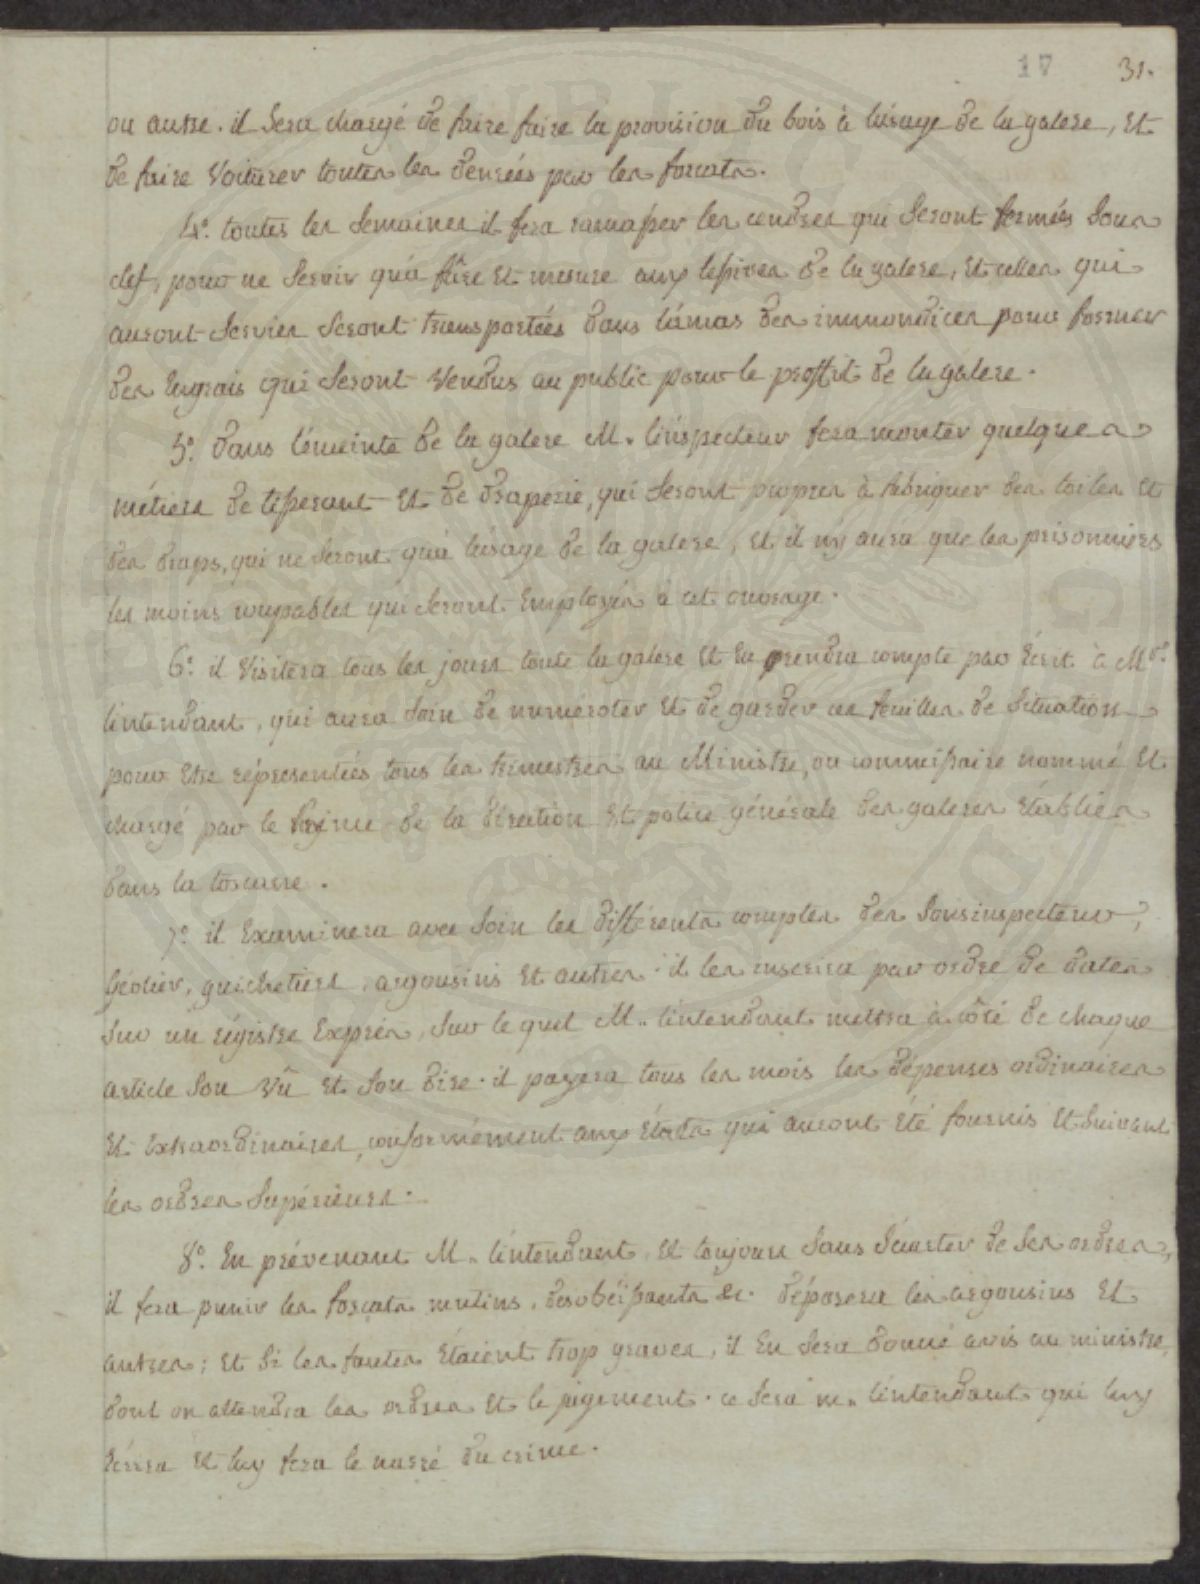 17 31.
ou autre. il sera chargé de faire faire la provision du bois à l'úsage de la galere, Et
de faire Voiturer toutes les denrées par les forcats.
4.° toutes les semaines il fera ramasser les cendres qui seront fermées sous
clef, pour ne servir qu'à fûre et mesure aux lessives de la galere, Et celles qui
auront servies seront transportées dans l'ámas des immondices pour former
des Engrais qui seront Vendus au public pour le proffit de la galere.
5.° dans l'énceinte de la galere M. l'inspecteur fera monter quelques
métiers de tisserant Et de draperie, qui seront propres à fabriquer des toiles Et
des draps, qui ne seront qu'à l'úsage de la galere, Et il n'y aura que les prisonniers
les moins coupables qui seront Employés à cet ouvrage.
6.° il Visitera tous les jours toute la galere Et En prendra compte par Écrit à M.r
l'intendant, qui aura soin de numéroter Et de garder ces feuilles de situation
pour Etre réprésentées tous les trimestres au Ministre, ou commissaire nommé Et
chargé par le Prince de la diréction Et police générale des galeres Etablies
dans la toscane.
7.° il Examinera avec soin les différents comptes des sousinspecteur,
Géolier, guichetiers, argousins Et autres. il les inscrira par ordre de dates
sur un régistre Exprés, sur le quel M. l'intendant mettra à côté de chaque
article son Vû Et son dire. il payera tous les mois les dépenses ordinaires
Et Extraordinaires, conformément aux états qui auront Eté fournis Et suivant
les ordres supérieurs.
8.° En prévenant M. l'intendant, Et toujours sans s'écarter de ses ordres,
il fera punir les forçats mutins, desobéissants &c. déposera les argousins Et
autres; Et si les fautes Etaient trop graves, il En sera donné avis au ministre,
dont on attendra les ordres Et le jugement. ce sera m. l'intendant qui luy
Écrira Et luy fera le narré du crime.